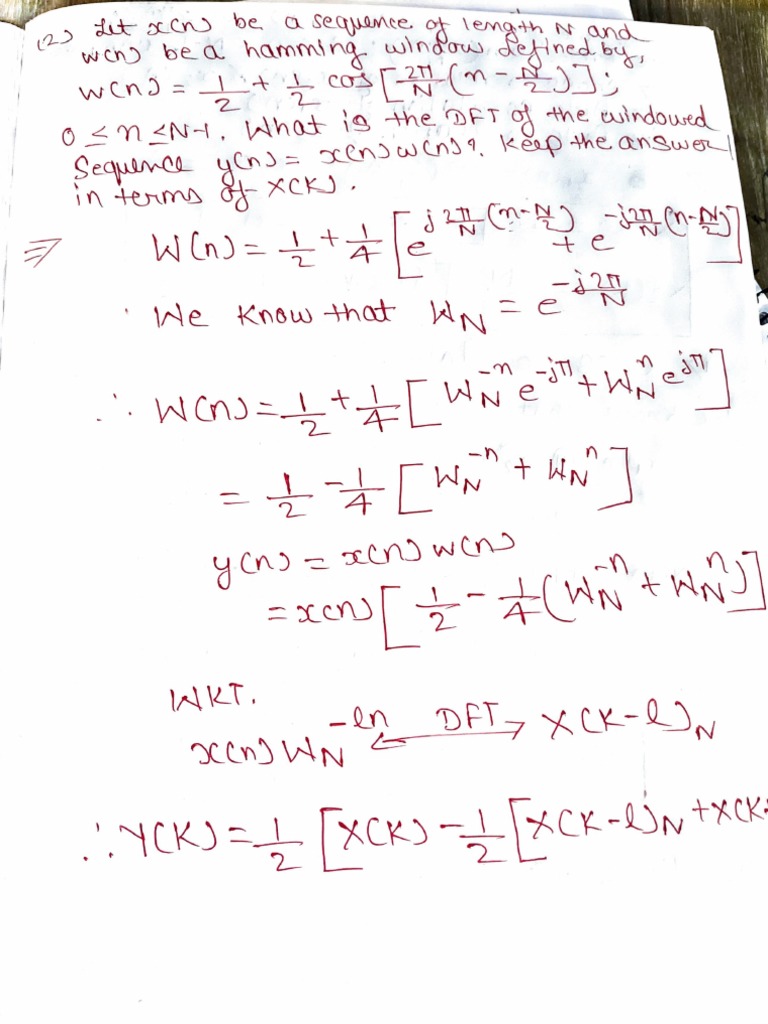 (2) Let x(n) be a sequence of length N and
w(n) be a hamming window defined by,
w(n) = 1/2 + 1/2 cos[2π/N (n - N/2)];
0 ≤ n ≤ N-1. What is the DFT of the windowed
Sequence y(n) = x(n) w(n)?. Keep the answer
in terms of X(K).
⇒ W(n) = 1/2 + 1/4 [e^{j 2π/N (n-N/2)} + e^{-j 2π/N (n-N/2)}]
We know that W_N = e^{-j 2π/N}
∴ W(n) = 1/2 + 1/4 [W_N^{-n} e^{-jπ} + W_N^{n} e^{jπ}]
= 1/2 - 1/4 [W_N^{-n} + W_N^{n}]
y(n) = x(n) w(n)
= x(n) [1/2 - 1/4 (W_N^{-n} + W_N^{n})]
WKT.
x(n) W_N^{-ln} ←DFT→ X(K-l)_N
∴ Y(K) = 1/2 [X(K) - 1/2 [X(K-l)_N + X(K+